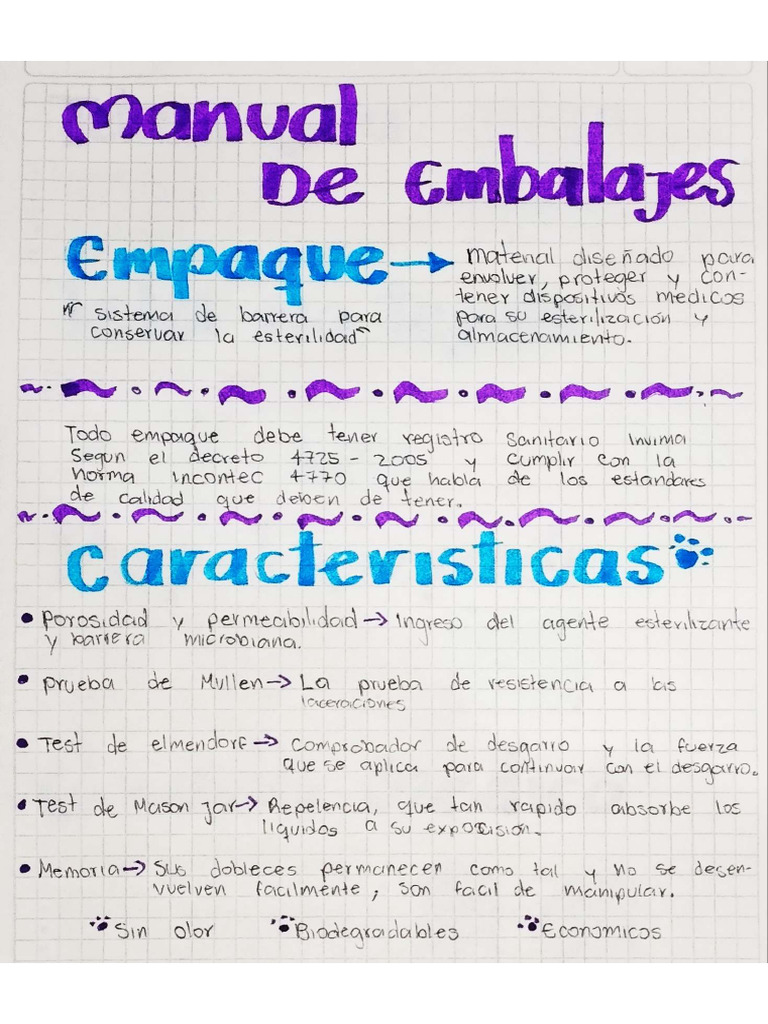 Manual
De Embalajes
Empaque → material diseñado para
envolver, proteger y con-
tener dispositivos medicos
para su esterilización y
almacenamiento.
" sistema de barrera para
conservar la esterilidad"
Todo empaque debe tener registro sanitario invima
Segun el decreto 4725 - 2005 y cumplir con la
norma incontec 4770 que habla de los estandares
de calidad que deben de tener.
Caracteristicas
• Porosidad y permeabilidad → Ingreso del agente esterilizante
y barrera microbiana.
• prueba de Mullen → La prueba de resistencia a las
laceraciones
• Test de elmendorf → Comprobador de desgarro y la fuerza
que se aplica para continuar con el desgarro.
• Test de Mason jar → Repelencia, que tan rapido absorbe los
liquidos a su exposision.
• Memoria → Sus dobleces permanecen como tal y no se desen-
vuelven facilmente, son facil de manipular.
Sin olor Biodegradables Economicos